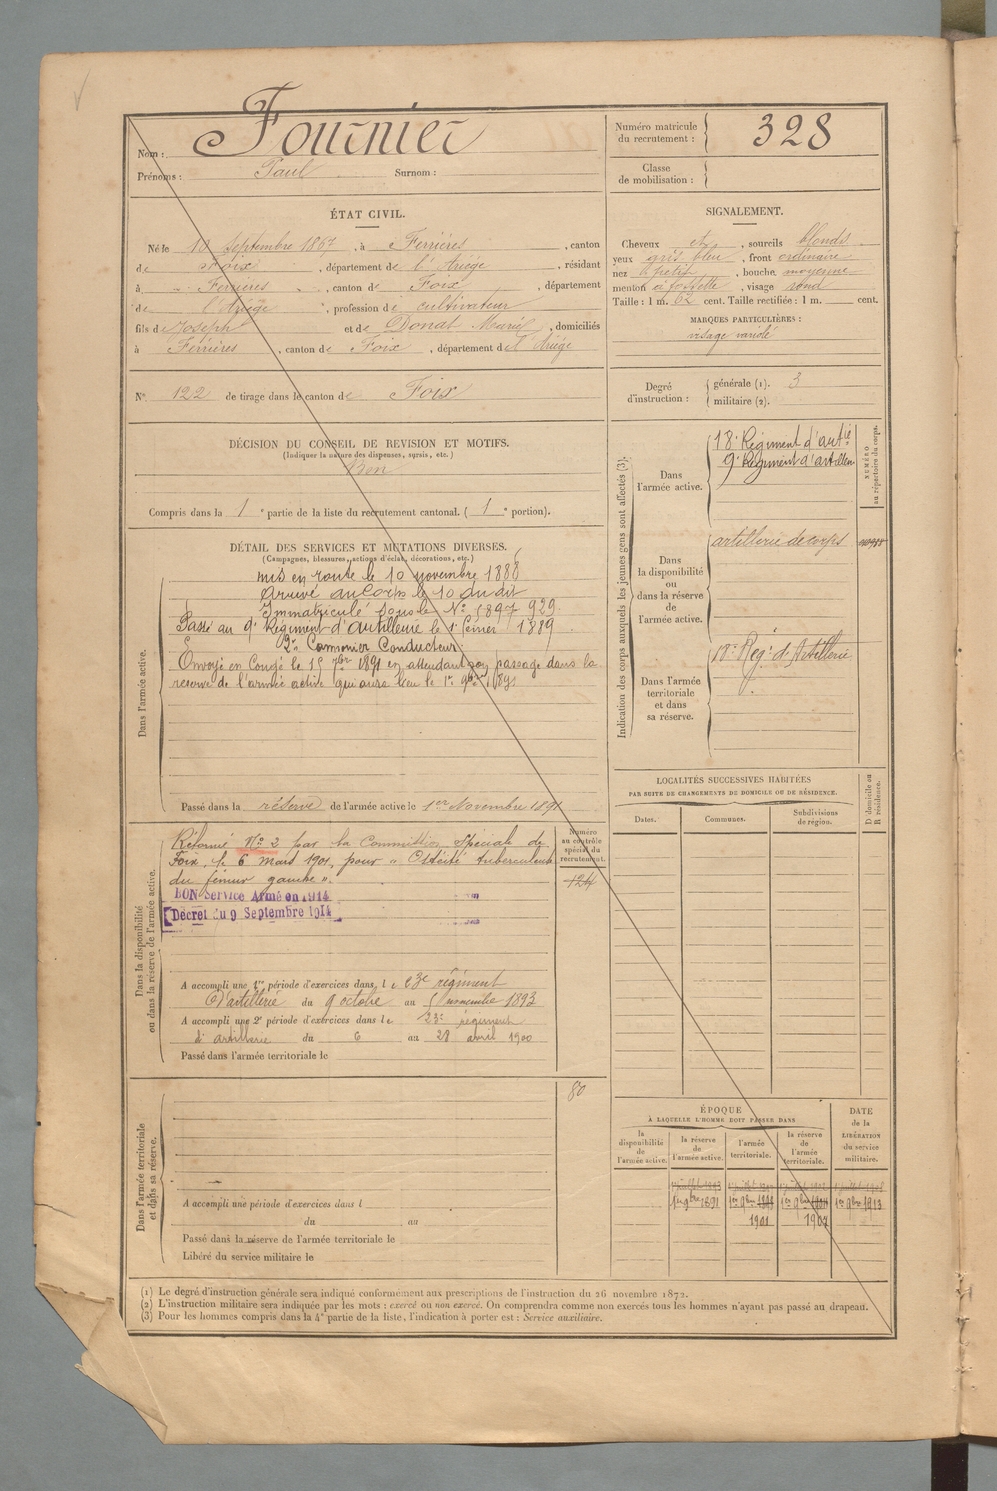 Nom : Fournier
Prénoms : Paul Surnom :
Numéro matricule du recrutement : 328
Classe de mobilisation :
ÉTAT CIVIL.
Né le 10 Septembre 1867, à Ferrières, canton
de Foix, département de l'Ariège, résidant
à Ferrières, canton de Foix, département
de l'Ariège, profession de cultivateur
fils de Joseph et de Donat Marie, domiciliés
à Ferrières, canton de Foix, département de l'Ariège
N° 122 de tirage dans le canton de Foix
SIGNALEMENT.
Cheveux et, sourcils blonds
yeux gris bleu, front ordinaire
nez petit, bouche moyenne
menton à fossette, visage rond
Taille : 1 m. 62 cent. Taille rectifiée : 1 m. cent.
MARQUES PARTICULIÈRES :
visage variolé
Degré d'instruction : générale (1). 3
militaire (2).
DÉCISION DU CONSEIL DE REVISION ET MOTIFS.
(Indiquer la nature des dispenses, sursis, etc.)
Bon
Compris dans la 1e partie de la liste du recrutement cantonal. (1e portion).
DÉTAIL DES SERVICES ET MUTATIONS DIVERSES.
(Campagnes, blessures, actions d'éclat, décorations, etc.)
Dans l'armée active.
mis en route le 10 novembre 1888
Arrivé au Corps le 10 du dit
Immatriculé sous le N° 1897 929
Passé au 9e Régiment d'artillerie le 1er février 1889
2e Canonier Conducteur
Envoyé en Congé le 15 7bre 1891 en attendant son passage dans la
réserve de l'armée active qui aura lieu le 1er 9bre 1891
Passé dans la réserve de l'armée active le 1er Novembre 1891
Dans la disponibilité
ou dans la réserve de l'armée active.
Réformé N° 2 par la Commission Spéciale de
Foix, le 6 mars 1901, pour « Ostéité tuberculeuse
du fémur gauche ».
BON Service Armé en 1914
Décret du 9 Septembre 1914
Numéro
au contrôle
spécial du
recrutement.
124
A accompli une 1re période d'exercices dans le 23e régiment
d'artillerie du 9 octobre au 5 novembre 1893
A accompli une 2e période d'exercices dans le 23e régiment
d'artillerie du 6 au 28 avril 1900
Passé dans l'armée territoriale le
Dans l'armée territoriale
et dans sa réserve.
80
A accompli une période d'exercices dans l
du au
Passé dans la réserve de l'armée territoriale le
Libéré du service militaire le
Indication des corps auxquels les jeunes gens sont affectés (3).
NUMÉRO
au répertoire du corps.
Dans
l'armée active.
18e Régiment d'artie
9e Régiment d'artillerie
Dans
la disponibilité
ou
dans la réserve
de
l'armée active.
artillerie de corps
Dans l'armée
territoriale
et dans
sa réserve.
18e Rég. d'Artillerie
LOCALITÉS SUCCESSIVES HABITÉES
PAR SUITE DE CHANGEMENTS DE DOMICILE OU DE RÉSIDENCE.
Dates. Communes. Subdivisions
de région.
D domicile ou
R résidence.
ÉPOQUE
À LAQUELLE L'HOMME DOIT PASSER DANS
la
disponibilité
de
l'armée active.
la réserve
de
l'armée active.
l'armée
territoriale.
la réserve
de
l'armée
territoriale.
DATE
de la
LIBÉRATION
du service
militaire.
1er 9bre 1891 1er 9bre 1er 9bre 1er 9bre 1913
1901 1907
(1) Le degré d'instruction générale sera indiqué conformément aux prescriptions de l'instruction du 26 novembre 1872.
(2) L'instruction militaire sera indiquée par les mots : exercé ou non exercé. On comprendra comme non exercés tous les hommes n'ayant pas passé au drapeau.
(3) Pour les hommes compris dans la 4e partie de la liste, l'indication à porter est : Service auxiliaire.